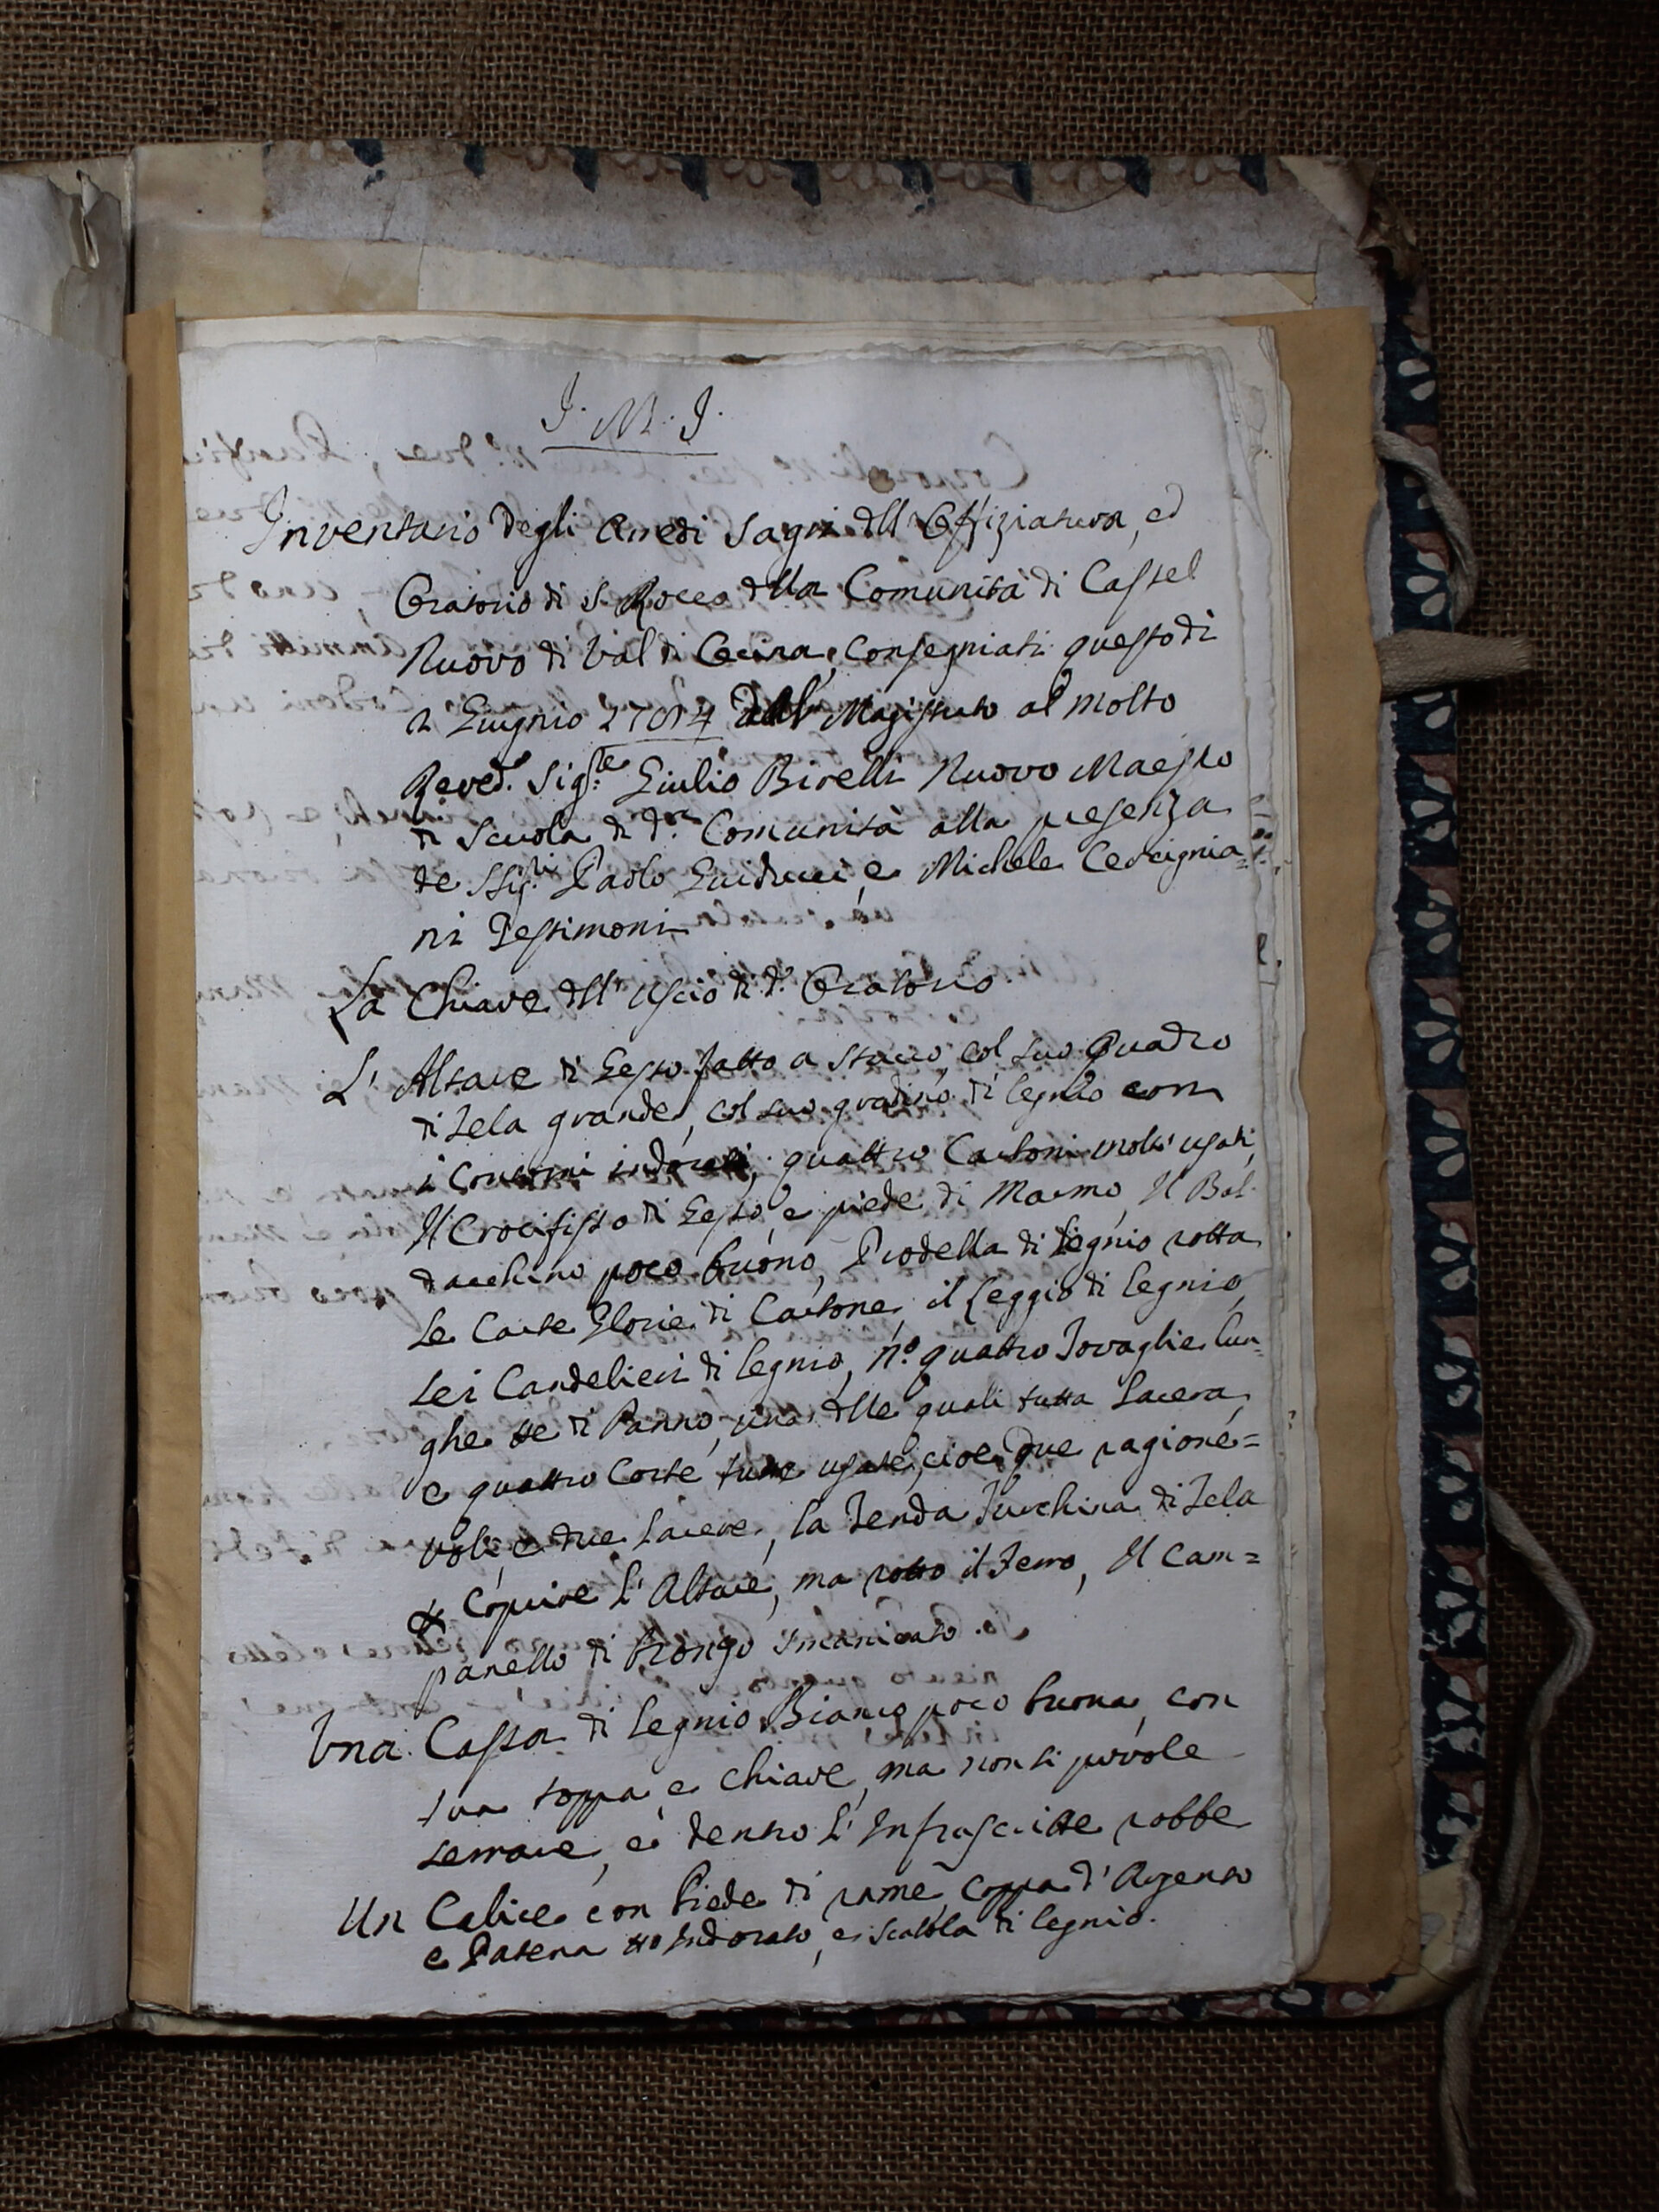 J. M. J.
Inventario degli Arredi Sagri dll Offiziatura, ed
Oratorio di S. Rocco dlla Comunità di Castel
Nuovo di Val di Cecina, Consegniati questo dì
Giugnio dal Magistrato al Molto
Reved. Sig.re Giulio Birelli Nuovo Maestro
di Scuola di d.a Comunità alla presenza
de SSig.ri Paolo Guiducci, e Michele Cercignia=
ni Testimoni
La Chiave dll' Uscio di d.o Oratorio
L' Altare di Gesso fatto a Stucco, col suo Quadro
di Tela grande, col suo gradino di legnio con
i Contorni indorati, quattro Cartoni molti usati,
Il Crocifisso di Gesso, e piede di Marmo, Il Bal
dacchino poco buono, Predella di legnio rotta
Le Carte Glorie di Cartone, il Leggio di legnio,
Sei Candelieri di legnio, n.o quattro Tovaglie lun=
ghe tte di Panno, una dlle quali tutta lacera,
e quattro Corte tutte usate, cioe due ragione=
voli, e due lacere, la Tenda Turchina di Tela
p Coprire l' Altare, ma rotto il Ferro, Il Cam=
panello di bronzo smanicato.
Una Cassa di legnio Bianco poco buona, con
sua toppa, e chiave, ma non si puole
serrare, e dentro l' Infrascritte robbe
Un Calice con Piede di rame, coppa d' Argento
e Patena tto Indorato, e Scatola di legnio.